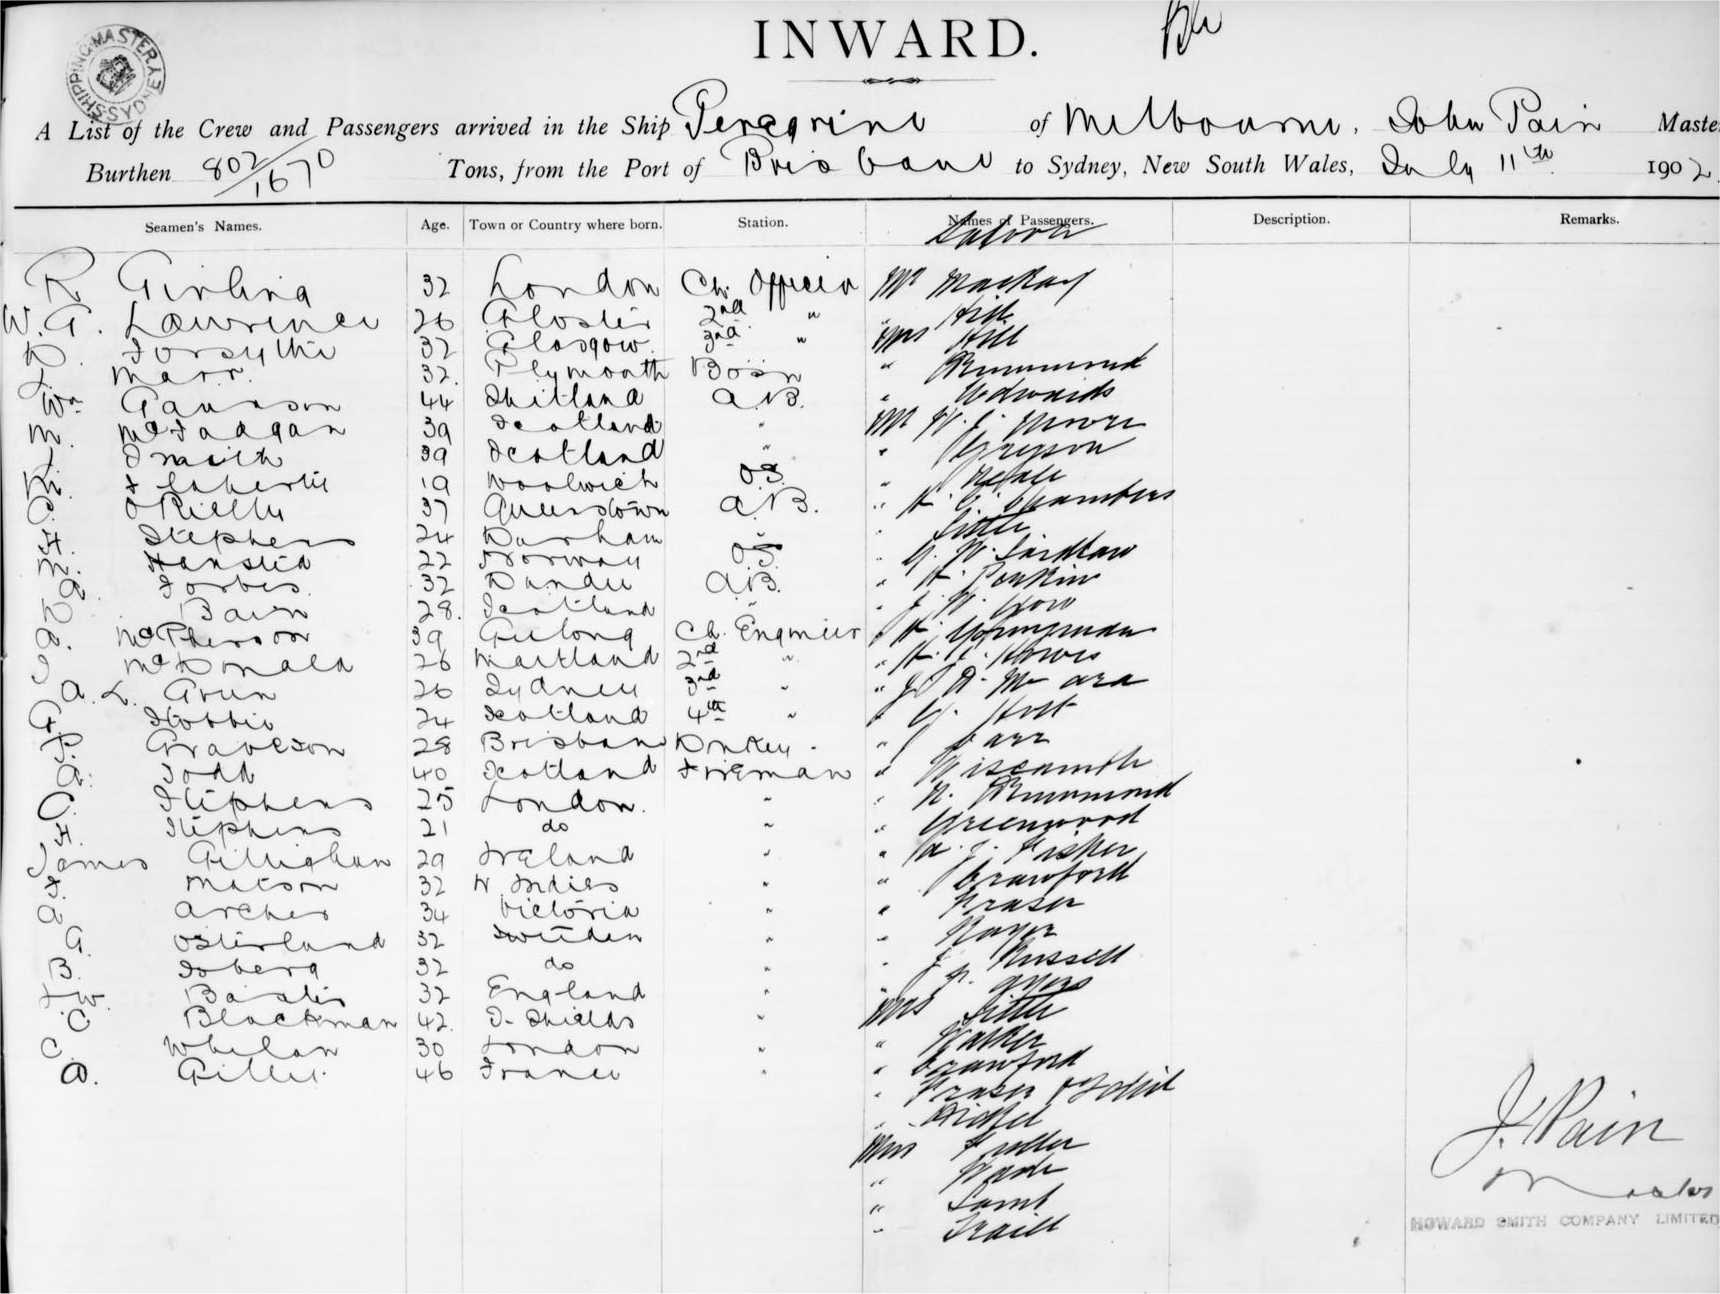 INWARD.
SHIPPING MASTER SYDNEY
A List of the Crew and Passengers arrived in the Ship Peregrine of Melbourne, John Pain Master
Burthen 802/1670 Tons, from the Port of Brisbane to Sydney, New South Wales, July 11th 1902
Seamen's Names. Age. Town or Country where born. Station. Names of Passengers. Description. Remarks.
Saloon
R Girling 32 London Ch. Officer Mr Mackay
W. G. Lawrence 26 Gloster 2nd " " Hill
D. Forsythe 32 Glasgow 3rd " Mrs Hill
J. Marr. 32. Plymouth Bosn " Drummond
Wm 44 Shetland A.B. " Edwards
M. McFadgan 39 Scotland " Mr W. J. Moore
J. Smith 39 Scotland " " Grayson
19 Woolwich O.S. "
O'Rielly 37 Queenstown A.B. " H. C. Chambers
H. Stephens 24 Durham " " Little
M. Hansted 22 Norway O.S. " G. W. Laidlaw
A. Forbes. 32 Dundee A.B. "
D Bain 28. Scotland " " J. W.
D. McPherson 39 Geelong Ch. Engineer " H. Youngman
J McDonald 26 Maitland 2nd " " H.
A. L. Green 26 Sydney 3rd " "
G Stobbie 24 Scotland 4th " " G. Holt
P. Graveson 28 Brisbane Donkey - " Carr
A. Todd 40 Scotland Fireman "
C. Stephens 25 London. " " N. Drummond
H. Stephens 21 do " " Greenwood
James Gillighan 29 Ireland " " A. J. Fisher
F. Matson 32 W. Indies " " Crawford
A Archer 34 Victoria " " Fraser
G. Osterland 32 Sweeden " "
B. Soberg 32 do " " J. Russell
F. W. 32 England " " Ayers
C Blackman 42. S. Shields " Mrs Little
C. Whelan 30 London " " Walker
A. Gilles. 46 France " " Crawford
" Fraser & Child
" "
Miss Fuller
" Wade
" Lamb
" Traill
J. Pain
Master
HOWARD SMITH COMPANY LIMITED